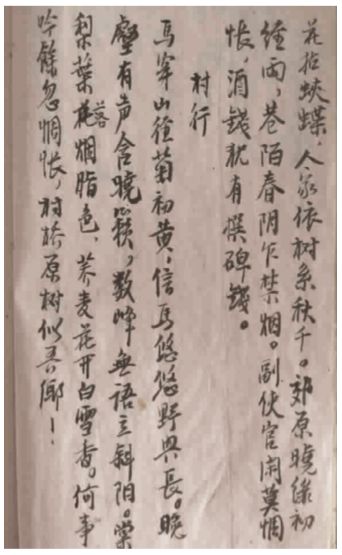 花拈蛱蝶，人家依树系秋千。郊原晓绿初
经雨，巷陌春阴乍禁烟。副使官闲莫惆
怅，酒钱犹有撰碑钱。
村行
马穿山径菊初黄，信马悠悠野兴长。晚
壑有声含晚籁，数峰无语立斜阳。棠
梨葉落烟脂色，荞麦花开白雪香。何事
吟馀忽惆怅，村桥原树似吾乡！